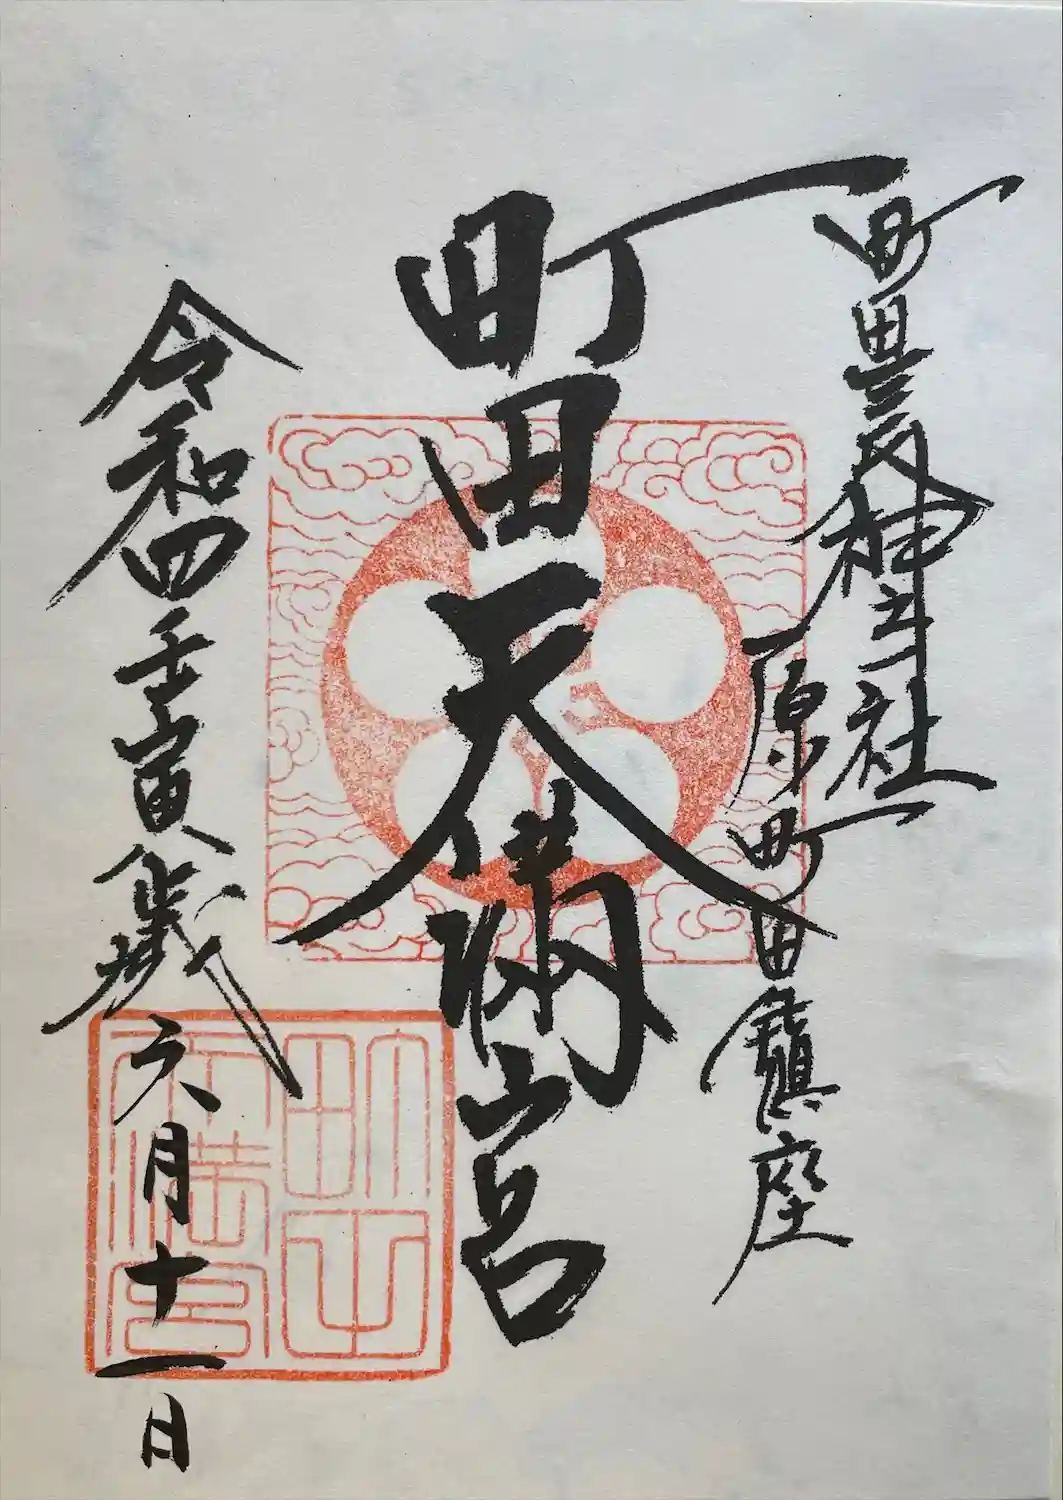 町田神社
原町田鎮座
町田天満宮
令和四壬寅歳六月十一日
町田
天満宮